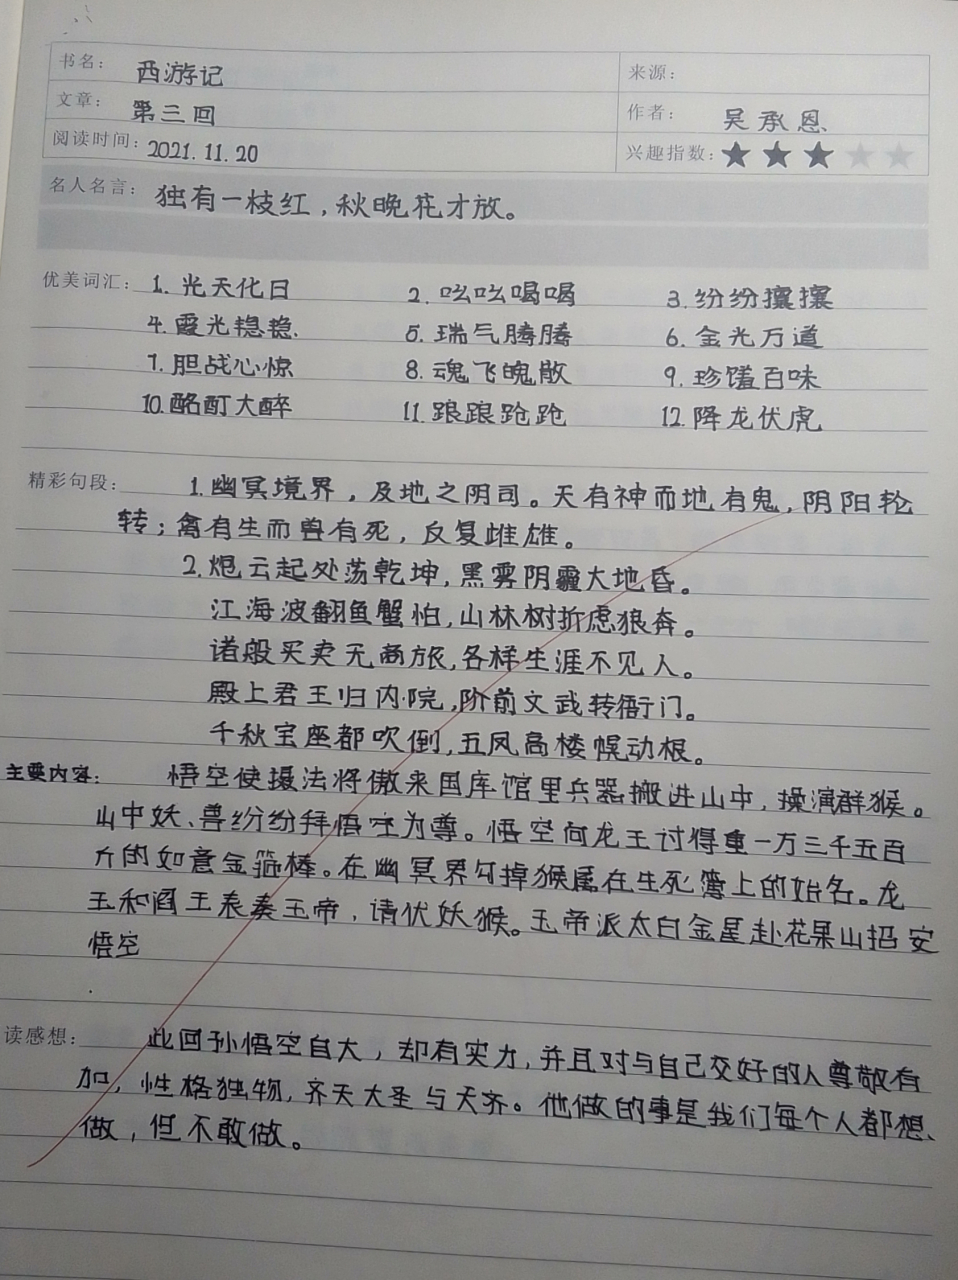 书名： 西游记 来源：
文章： 第三回 作者： 吴承恩
阅读时间： 2021.11.20 兴趣指数：★★★★★
名人名言： 独有一枝红，秋晚花才放。
优美词汇： 1. 光天化日 2. 吆吆喝喝 3. 纷纷攘攘
4. 霞光艳艳 5. 瑞气腾腾 6. 金光万道
7. 胆战心惊 8. 魂飞魄散 9. 珍馐百味
10. 酩酊大醉 11. 踉踉跄跄 12. 降龙伏虎
精彩句段： 1. 幽冥境界，及地之阴司。天有神而地有鬼，阴阳轮
转；禽有生而兽有死，反复雌雄。
2. 炮云起处荡乾坤，黑雾阴霾大地昏。
江海波翻鱼蟹怕，山林树折虑狼奔。
诸般买卖无商旅，各样生涯不见人。
殿上君王归内院，阶前文武转衙门。
千秋宝座都吹倒，五凤高楼幌动根。
主要内容： 悟空使摄法将傲来国库馆里兵器搬进山中，操演群猴。
山中妖、兽纷纷拜悟空为尊。悟空向龙王讨得重一万三千五百
斤的如意金箍棒。在幽冥界勾掉猴属在生死簿上的姓名。龙
王和阎王表奏玉帝，请伏妖猴。玉帝派太白金星赴花果山招安
悟空
读感想： 此回孙悟空自大，却有实力，并且对与自己交好的人尊敬有
加，性格独物，齐天大圣与天齐。他做的事是我们每个人都想
做，但不敢做。